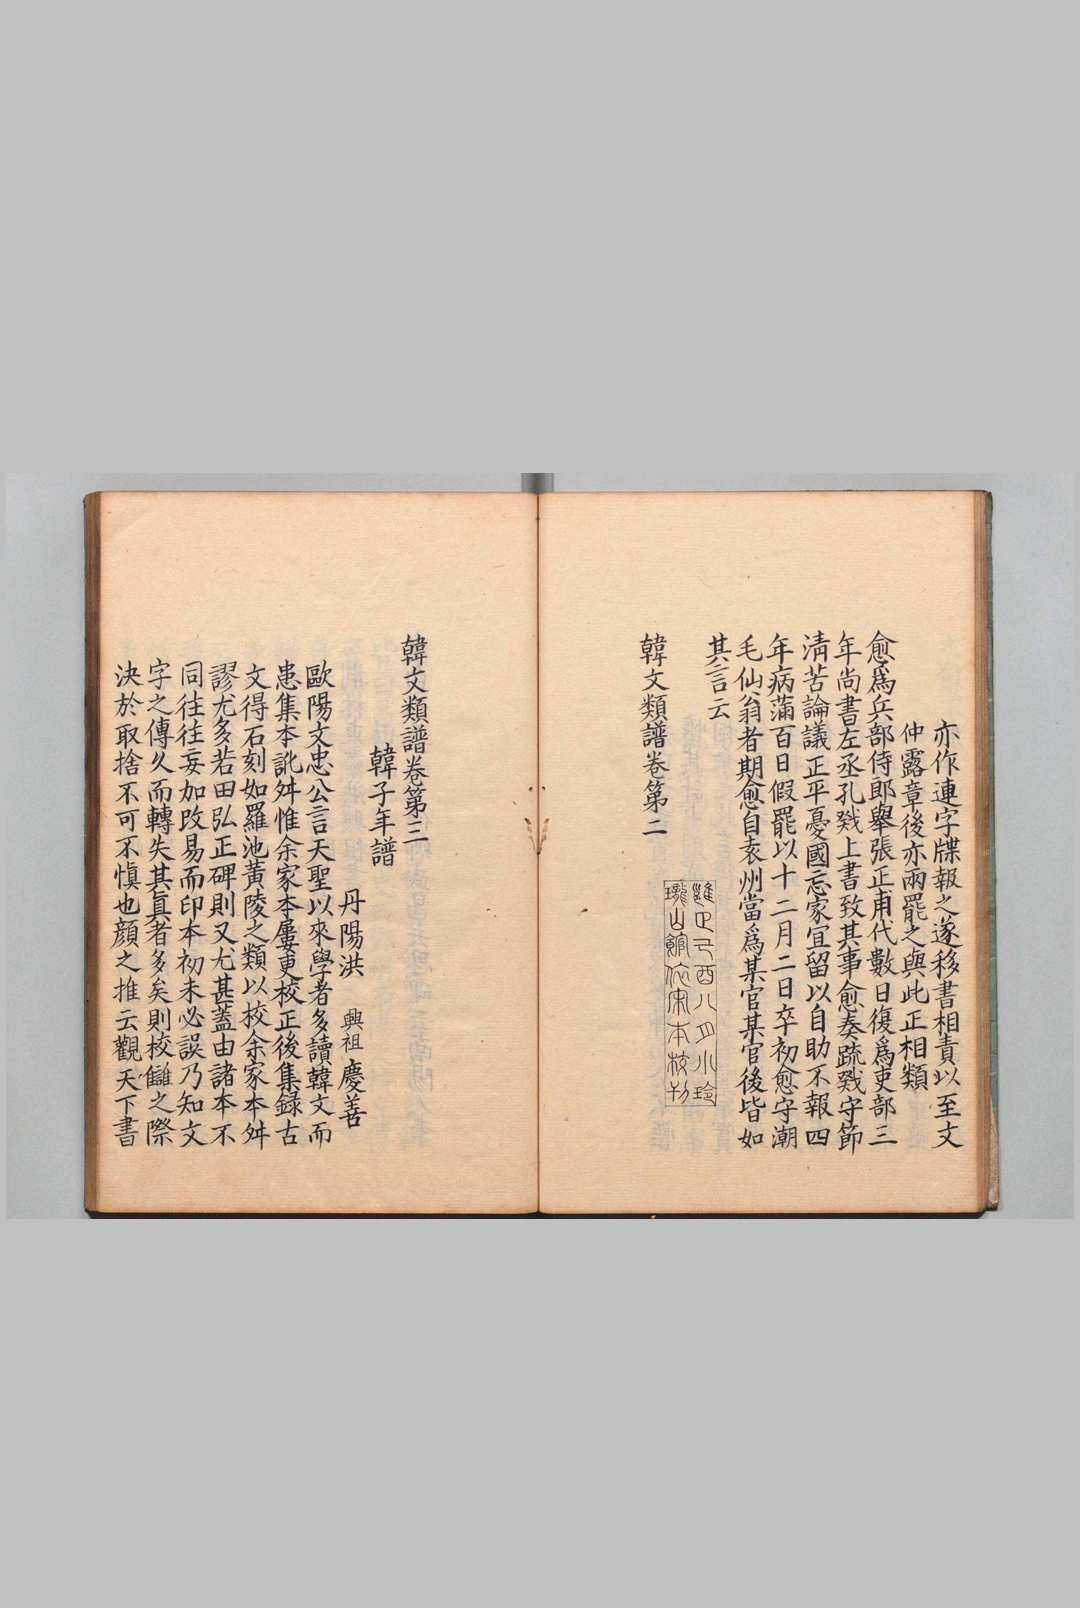 亦作連字牒報之遂移書相責以至文
仲露章後亦兩罷之與此正相類
愈爲兵部侍郎舉張正甫代數日復爲吏部三
年尚書左丞孔戣上書致其事愈奏疏戣守節
清苦論議正平憂國忘家宜留以自助不報四
年病滿百日假罷以十二月二日卒初愈守潮
毛仙翁者期愈自袁州當爲某官某官後皆如
其言云
雍正己酉八月小玲
瓏山館仿宋本校刊
韓文類譜卷第二
韓文類譜卷第三
韓子年譜
丹陽洪 興祖 慶善
歐陽文忠公言天聖以來學者多讀韓文而
患集本訛舛惟余家本屢更校正後集録古
文得石刻如羅池黃陵之類以校余家本舛
謬尤多若田弘正碑則又尤甚蓋由諸本不
同往往妄加改易而印本初未必誤乃知文
字之傳久而轉失其眞者多矣則校讎之際
決於取捨不可不愼也顏之推云觀天下書